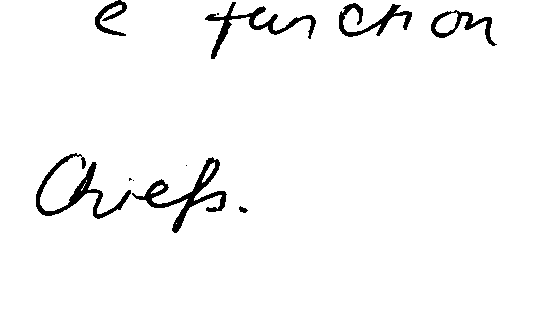 e function
Chiefs.